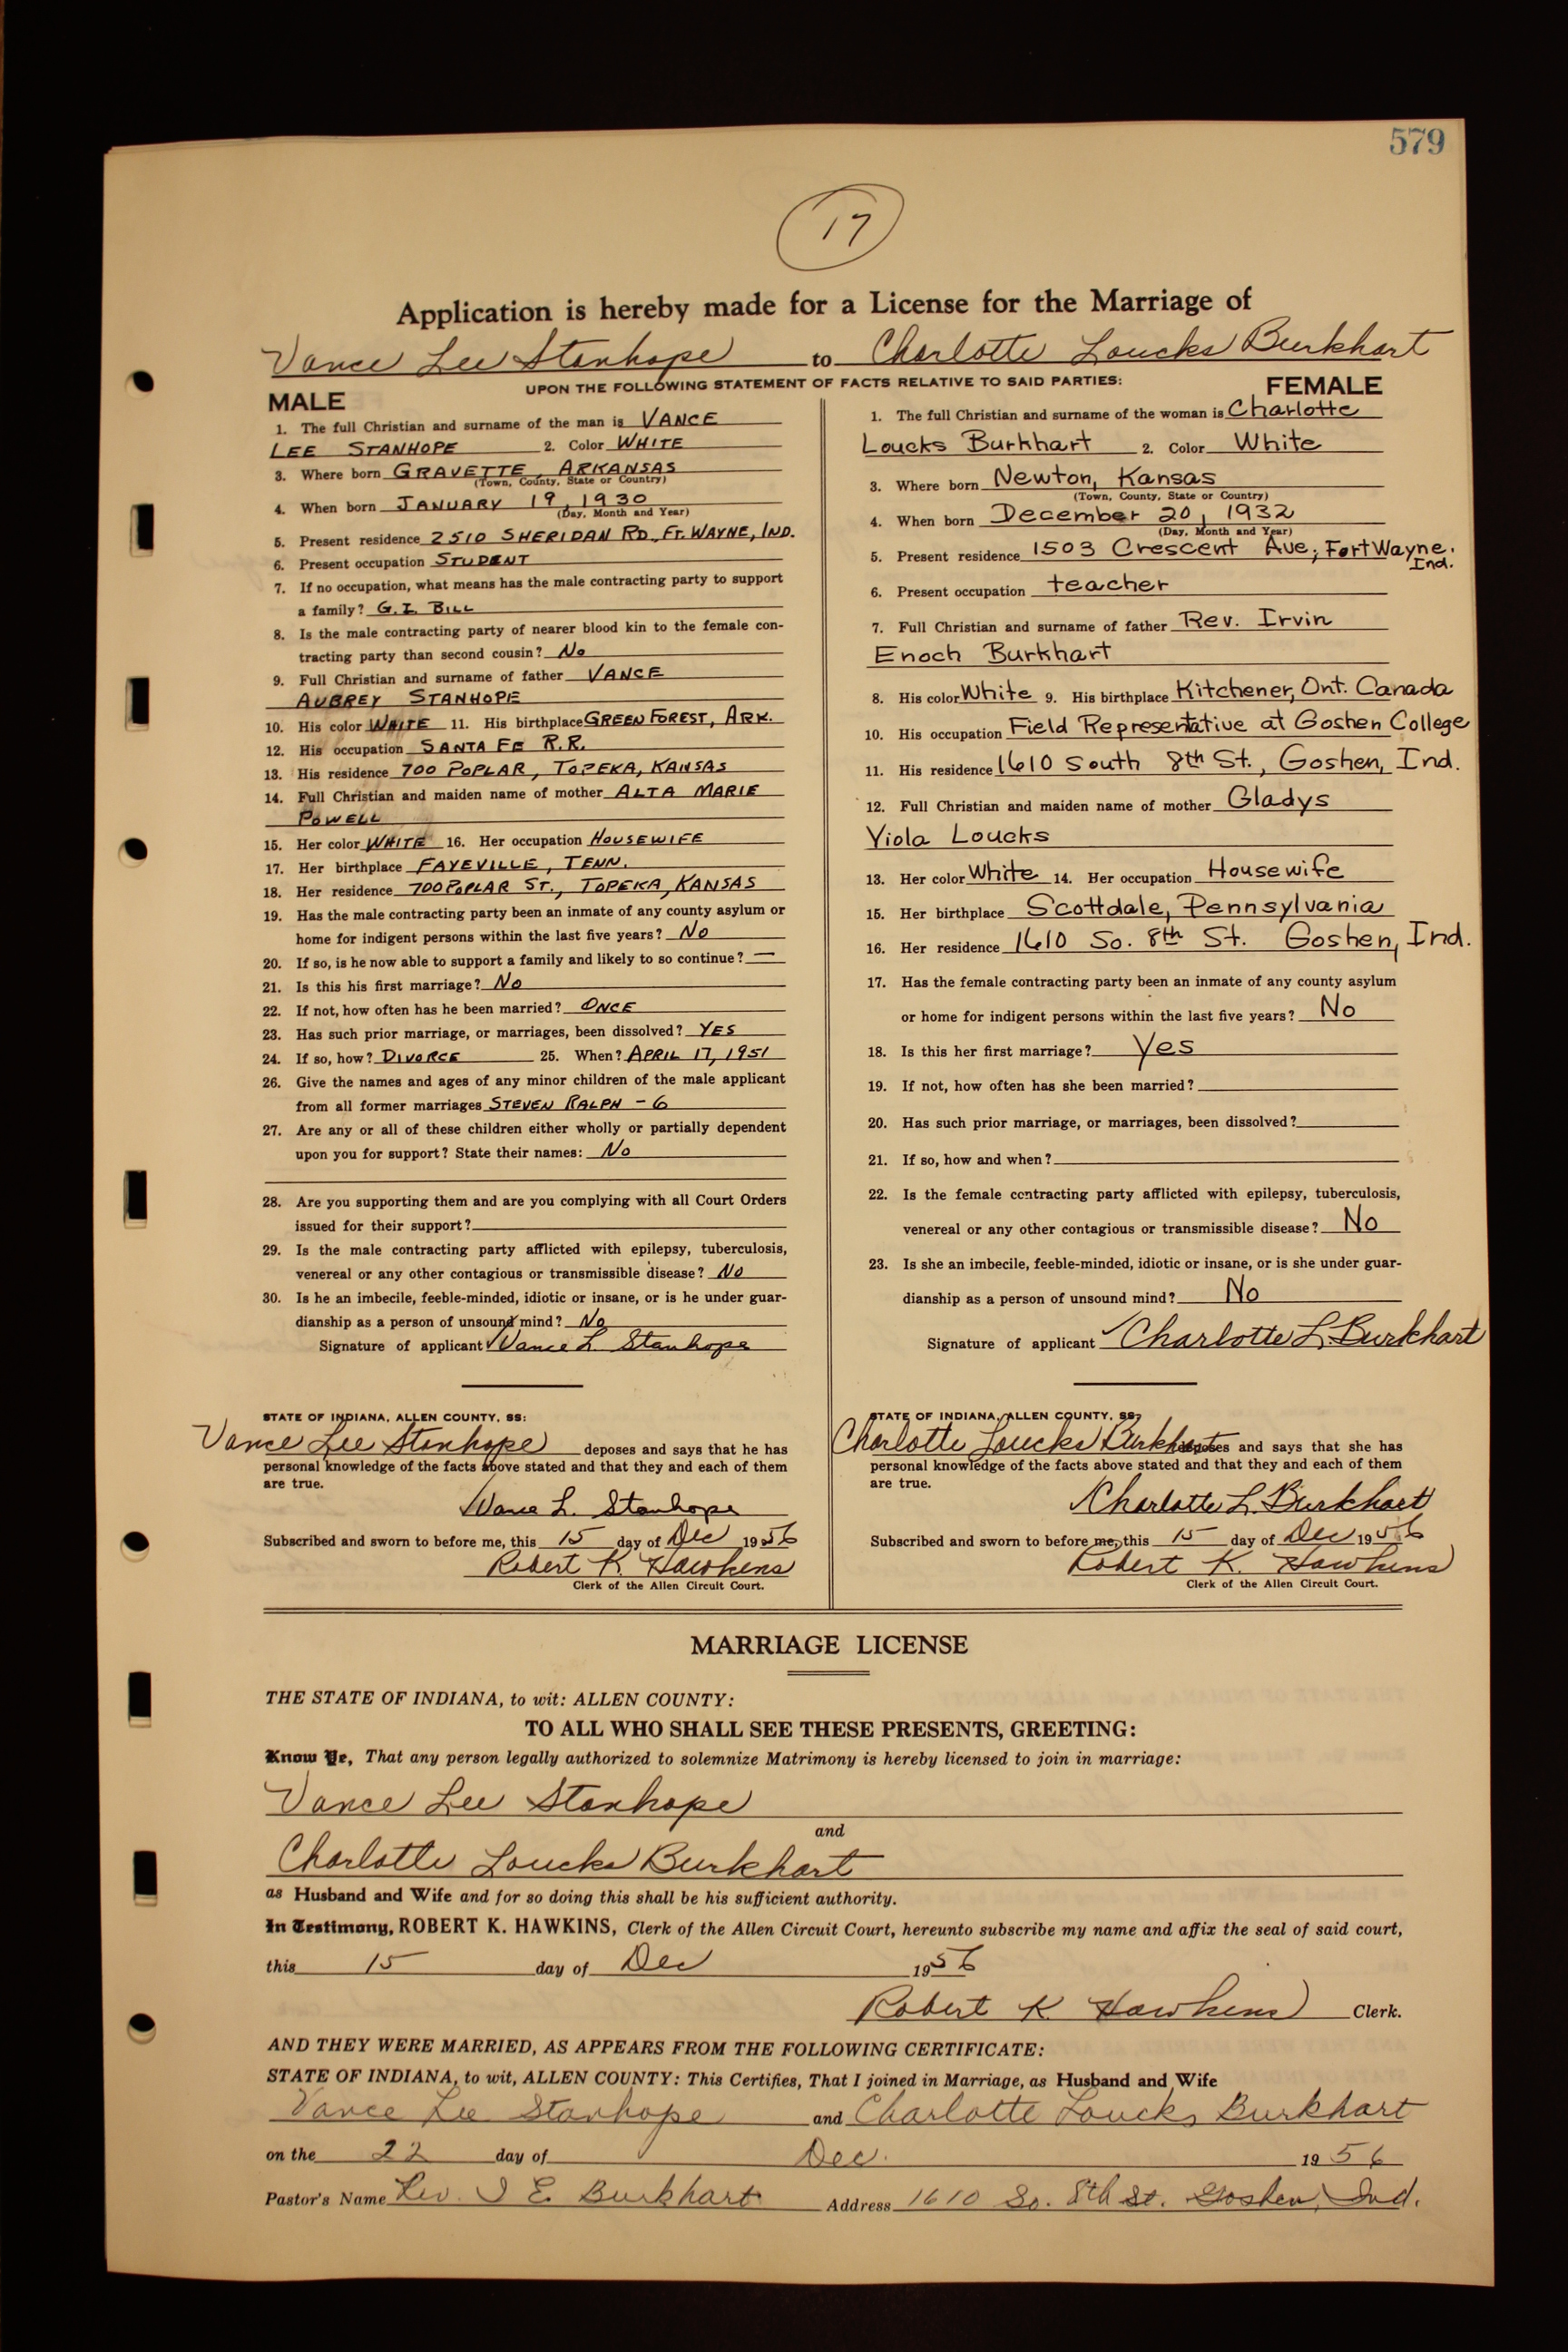 579
17
Application is hereby made for a License for the Marriage of
Vance Lee Stanhope to Charlotte Loucks Burkhart
UPON THE FOLLOWING STATEMENT OF FACTS RELATIVE TO SAID PARTIES:
MALE
1. The full Christian and surname of the man is VANCE
LEE STANHOPE 2. Color WHITE
3. Where born GRAVETTE, ARKANSAS
(Town, County, State or Country)
4. When born JANUARY 19, 1930
(Day, Month and Year)
5. Present residence 2510 SHERIDAN RD., FT. WAYNE, IND.
6. Present occupation STUDENT
7. If no occupation, what means has the male contracting party to support
a family? G.I. BILL
8. Is the male contracting party of nearer blood kin to the female con-
tracting party than second cousin? No
9. Full Christian and surname of father VANCE
AUBREY STANHOPE
10. His color WHITE 11. His birthplace GREEN FOREST, ARK.
12. His occupation SANTA FE R.R.
13. His residence 700 POPLAR, TOPEKA, KANSAS
14. Full Christian and maiden name of mother ALTA MARIE
POWELL
15. Her color WHITE 16. Her occupation HOUSEWIFE
17. Her birthplace FAYEVILLE, TENN.
18. Her residence 700 POPLAR ST., TOPEKA, KANSAS
19. Has the male contracting party been an inmate of any county asylum or
home for indigent persons within the last five years? No
20. If so, is he now able to support a family and likely to so continue? —
21. Is this his first marriage? No
22. If not, how often has he been married? ONCE
23. Has such prior marriage, or marriages, been dissolved? YES
24. If so, how? DIVORCE 25. When? APRIL 17, 1951
26. Give the names and ages of any minor children of the male applicant
from all former marriages STEVEN RALPH - 6
27. Are any or all of these children either wholly or partially dependent
upon you for support? State their names: No
28. Are you supporting them and are you complying with all Court Orders
issued for their support?
29. Is the male contracting party afflicted with epilepsy, tuberculosis,
venereal or any other contagious or transmissible disease? No
30. Is he an imbecile, feeble-minded, idiotic or insane, or is he under guar-
dianship as a person of unsound mind? No
Signature of applicant Vance L. Stanhope
STATE OF INDIANA, ALLEN COUNTY, SS:
Vance Lee Stanhope deposes and says that he has
personal knowledge of the facts above stated and that they and each of them
are true.
Vance L. Stanhope
Subscribed and sworn to before me, this 15 day of Dec 1956
Robert K. Hawkins
Clerk of the Allen Circuit Court.
FEMALE
1. The full Christian and surname of the woman is Charlotte
Loucks Burkhart 2. Color White
3. Where born Newton, Kansas
(Town, County, State or Country)
4. When born December 20, 1932
(Day, Month and Year)
5. Present residence 1503 Crescent Ave; Fort Wayne.
Ind.
6. Present occupation teacher
7. Full Christian and surname of father Rev. Irvin
Enoch Burkhart
8. His color White 9. His birthplace Kitchener, Ont. Canada
10. His occupation Field Representative at Goshen College
11. His residence 1610 South 8th St., Goshen, Ind.
12. Full Christian and maiden name of mother Gladys
Viola Loucks
13. Her color White 14. Her occupation Housewife
15. Her birthplace Scottdale, Pennsylvania
16. Her residence 1610 So. 8th St. Goshen, Ind.
17. Has the female contracting party been an inmate of any county asylum
or home for indigent persons within the last five years? No
18. Is this her first marriage? Yes
19. If not, how often has she been married?
20. Has such prior marriage, or marriages, been dissolved?
21. If so, how and when?
22. Is the female contracting party afflicted with epilepsy, tuberculosis,
venereal or any other contagious or transmissible disease? No
23. Is she an imbecile, feeble-minded, idiotic or insane, or is she under guar-
dianship as a person of unsound mind? No
Signature of applicant Charlotte L. Burkhart
STATE OF INDIANA, ALLEN COUNTY, SS:
Charlotte Loucks Burkhart deposes and says that she has
personal knowledge of the facts above stated and that they and each of them
are true.
Charlotte L. Burkhart
Subscribed and sworn to before me, this 15 day of Dec 1956
Robert K. Hawkins
Clerk of the Allen Circuit Court.
MARRIAGE LICENSE
THE STATE OF INDIANA, to wit: ALLEN COUNTY:
TO ALL WHO SHALL SEE THESE PRESENTS, GREETING:
Know Ye, That any person legally authorized to solemnize Matrimony is hereby licensed to join in marriage:
Vance Lee Stanhope
and
Charlotte Loucks Burkhart
as Husband and Wife and for so doing this shall be his sufficient authority.
In Testimony, ROBERT K. HAWKINS, Clerk of the Allen Circuit Court, hereunto subscribe my name and affix the seal of said court,
this 15 day of Dec 1956
Robert K. Hawkins Clerk.
AND THEY WERE MARRIED, AS APPEARS FROM THE FOLLOWING CERTIFICATE:
STATE OF INDIANA, to wit, ALLEN COUNTY: This Certifies, That I joined in Marriage, as Husband and Wife
Vance Lee Stanhope and Charlotte Loucks Burkhart
on the 22 day of Dec. 1956
Pastor's Name Rev. I E. Burkhart Address 1610 So. 8th St. Goshen, Ind.